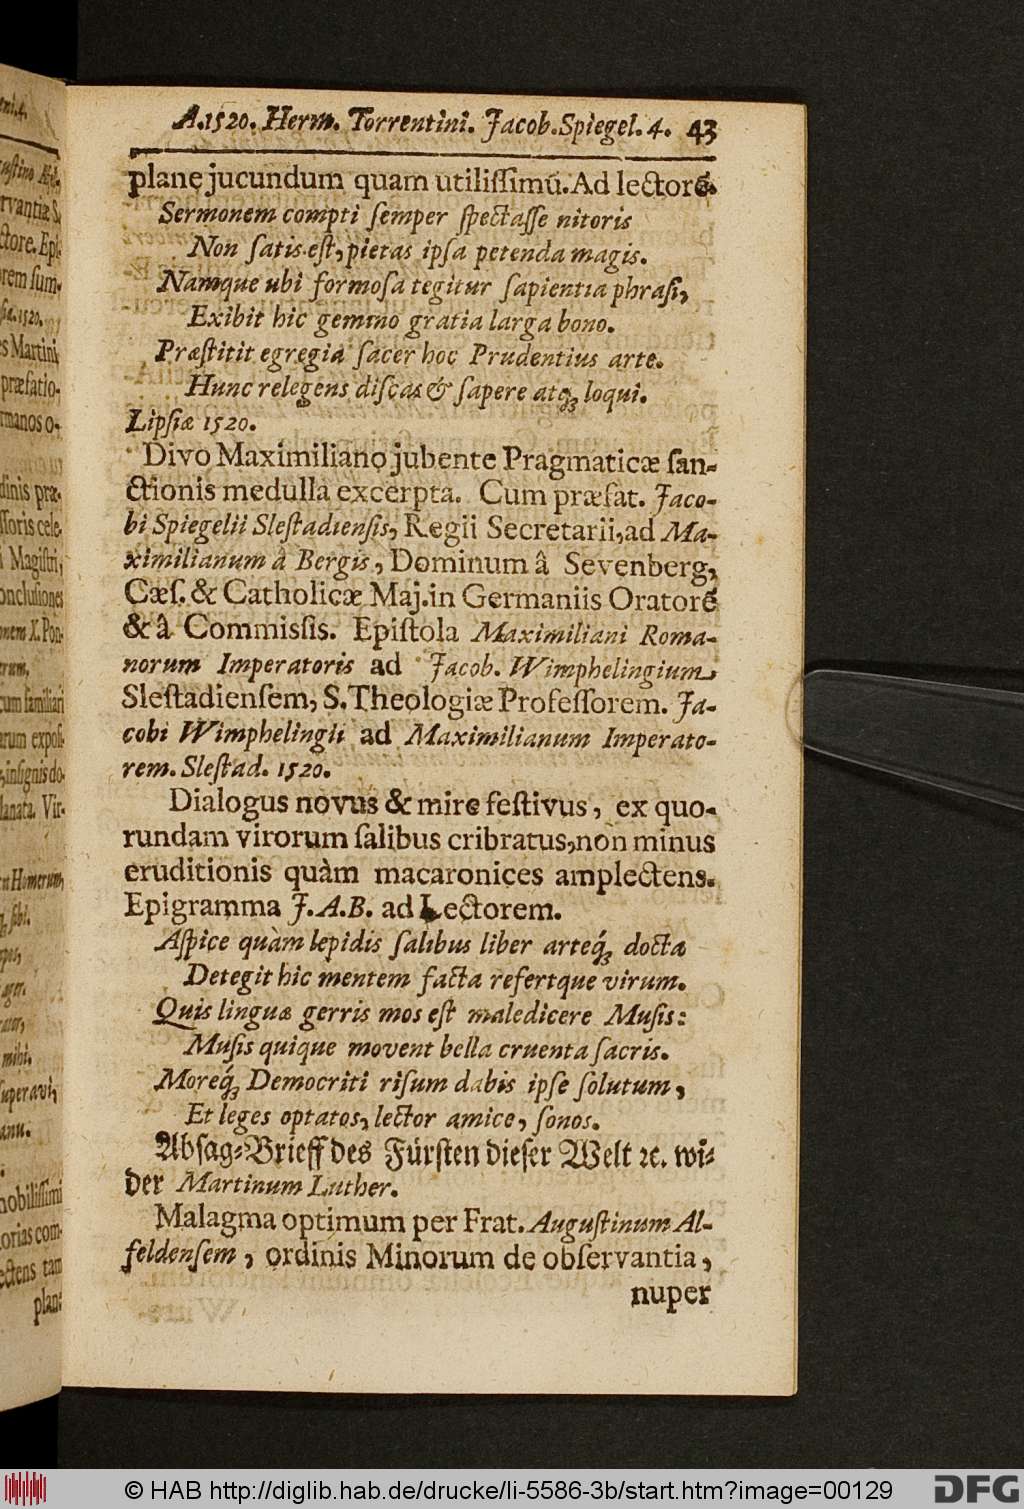 A. 1520. Herm. Torrentini. Jacob. Spiegel. 4. 43
plane jucundum quam utilissimū. Ad lectorē.
Sermonem compti semper spectasse nitoris
Non satis est, pietas ipsa petenda magis.
Namque ubi formosa tegitur sapientia phrasi,
Exibit hic gemino gratia larga bono.
Præstitit egregia sacer hoc Prudentius arte.
Hunc relegens discas & sapere atq; loqui.
Lipsiæ 1520.
Divo Maximiliano jubente Pragmaticæ san-
ctionis medulla excerpta. Cum præfat. Jaco-
bi Spiegelii Slestadiensis, Regii Secretarii, ad Ma-
ximilianum â Bergis, Dominum â Sevenberg,
Cæs. & Catholicæ Maj. in Germaniis Oratorē
& â Commissis. Epistola Maximiliani Roma-
norum Imperatoris ad Jacob. Wimphelingium,
Slestadiensem, S. Theologiæ Professorem. Ja-
cobi Wimphelingii ad Maximilianum Imperato-
rem. Slestad. 1520.
Dialogus novus & mire festivus, ex quo-
rundam virorum salibus cribratus, non minus
eruditionis quàm macaronices amplectens.
Epigramma J. A. B. ad Lectorem.
Aspice quàm lepidis salibus liber arteq́; docta
Detegit hic mentem facta refertque virum.
Quis linguæ gerris mos est maledicere Musis:
Musis quique movent bella cruenta sacris.
Moreq́; Democriti risum dabis ipse solutum,
Et leges optatos, lector amice, sonos.
Absag-Brieff des Fürsten dieser Welt ꝛc. wi-
der Martinum Luther.
Malagma optimum per Frat. Augustinum Al-
feldensem, ordinis Minorum de observantia,
nuper
© HAB http://diglib.hab.de/drucke/li-5586-3b/start.htm?image=00129
DFG